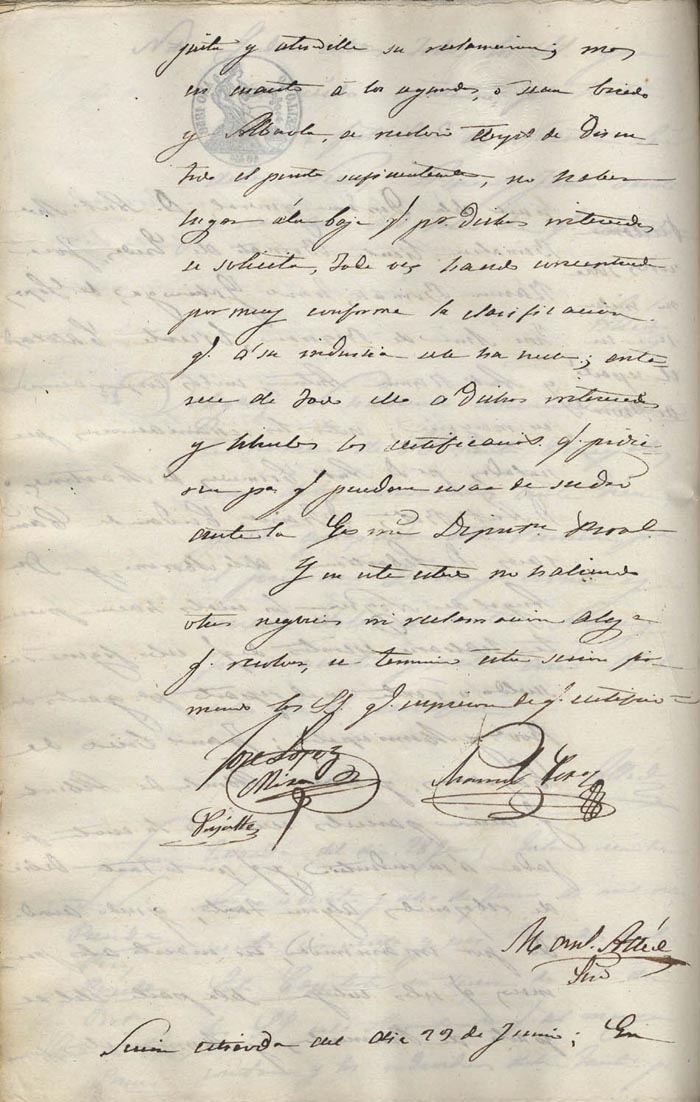 justa y atendible su reclamacion; mas
en cuanto á los segundos, ó sean
y se resolvió despues de discu-
tido el punto suficientemente, no haber
lugar á la baja q. por dichos interesados
se solicita, toda vez
por muy conforme la clasificacion
q. á su industria se le ha hecho; ente-
rese de todo ello á dichos interesados
y librense los certificacions. q. pidie-
ren pa. q. puedan usar de su dro
ante la Excma. Diputon. Proal.
Y en este estado no habiendo
otros negocios ni reclamacion alga
q. resolver, se termino esta sesion fir-
mando los SS. q. supieron de q. certifico=
Jose Lopez
Manuel
Manl.
Srio
Sesion del dia 29 de Junio; En